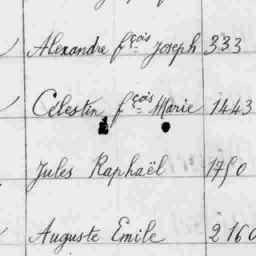 Alexandre fçois Joseph 333
Célestin fçois Marie 1443
Jules Raphaël 1790
Auguste Emile 2160